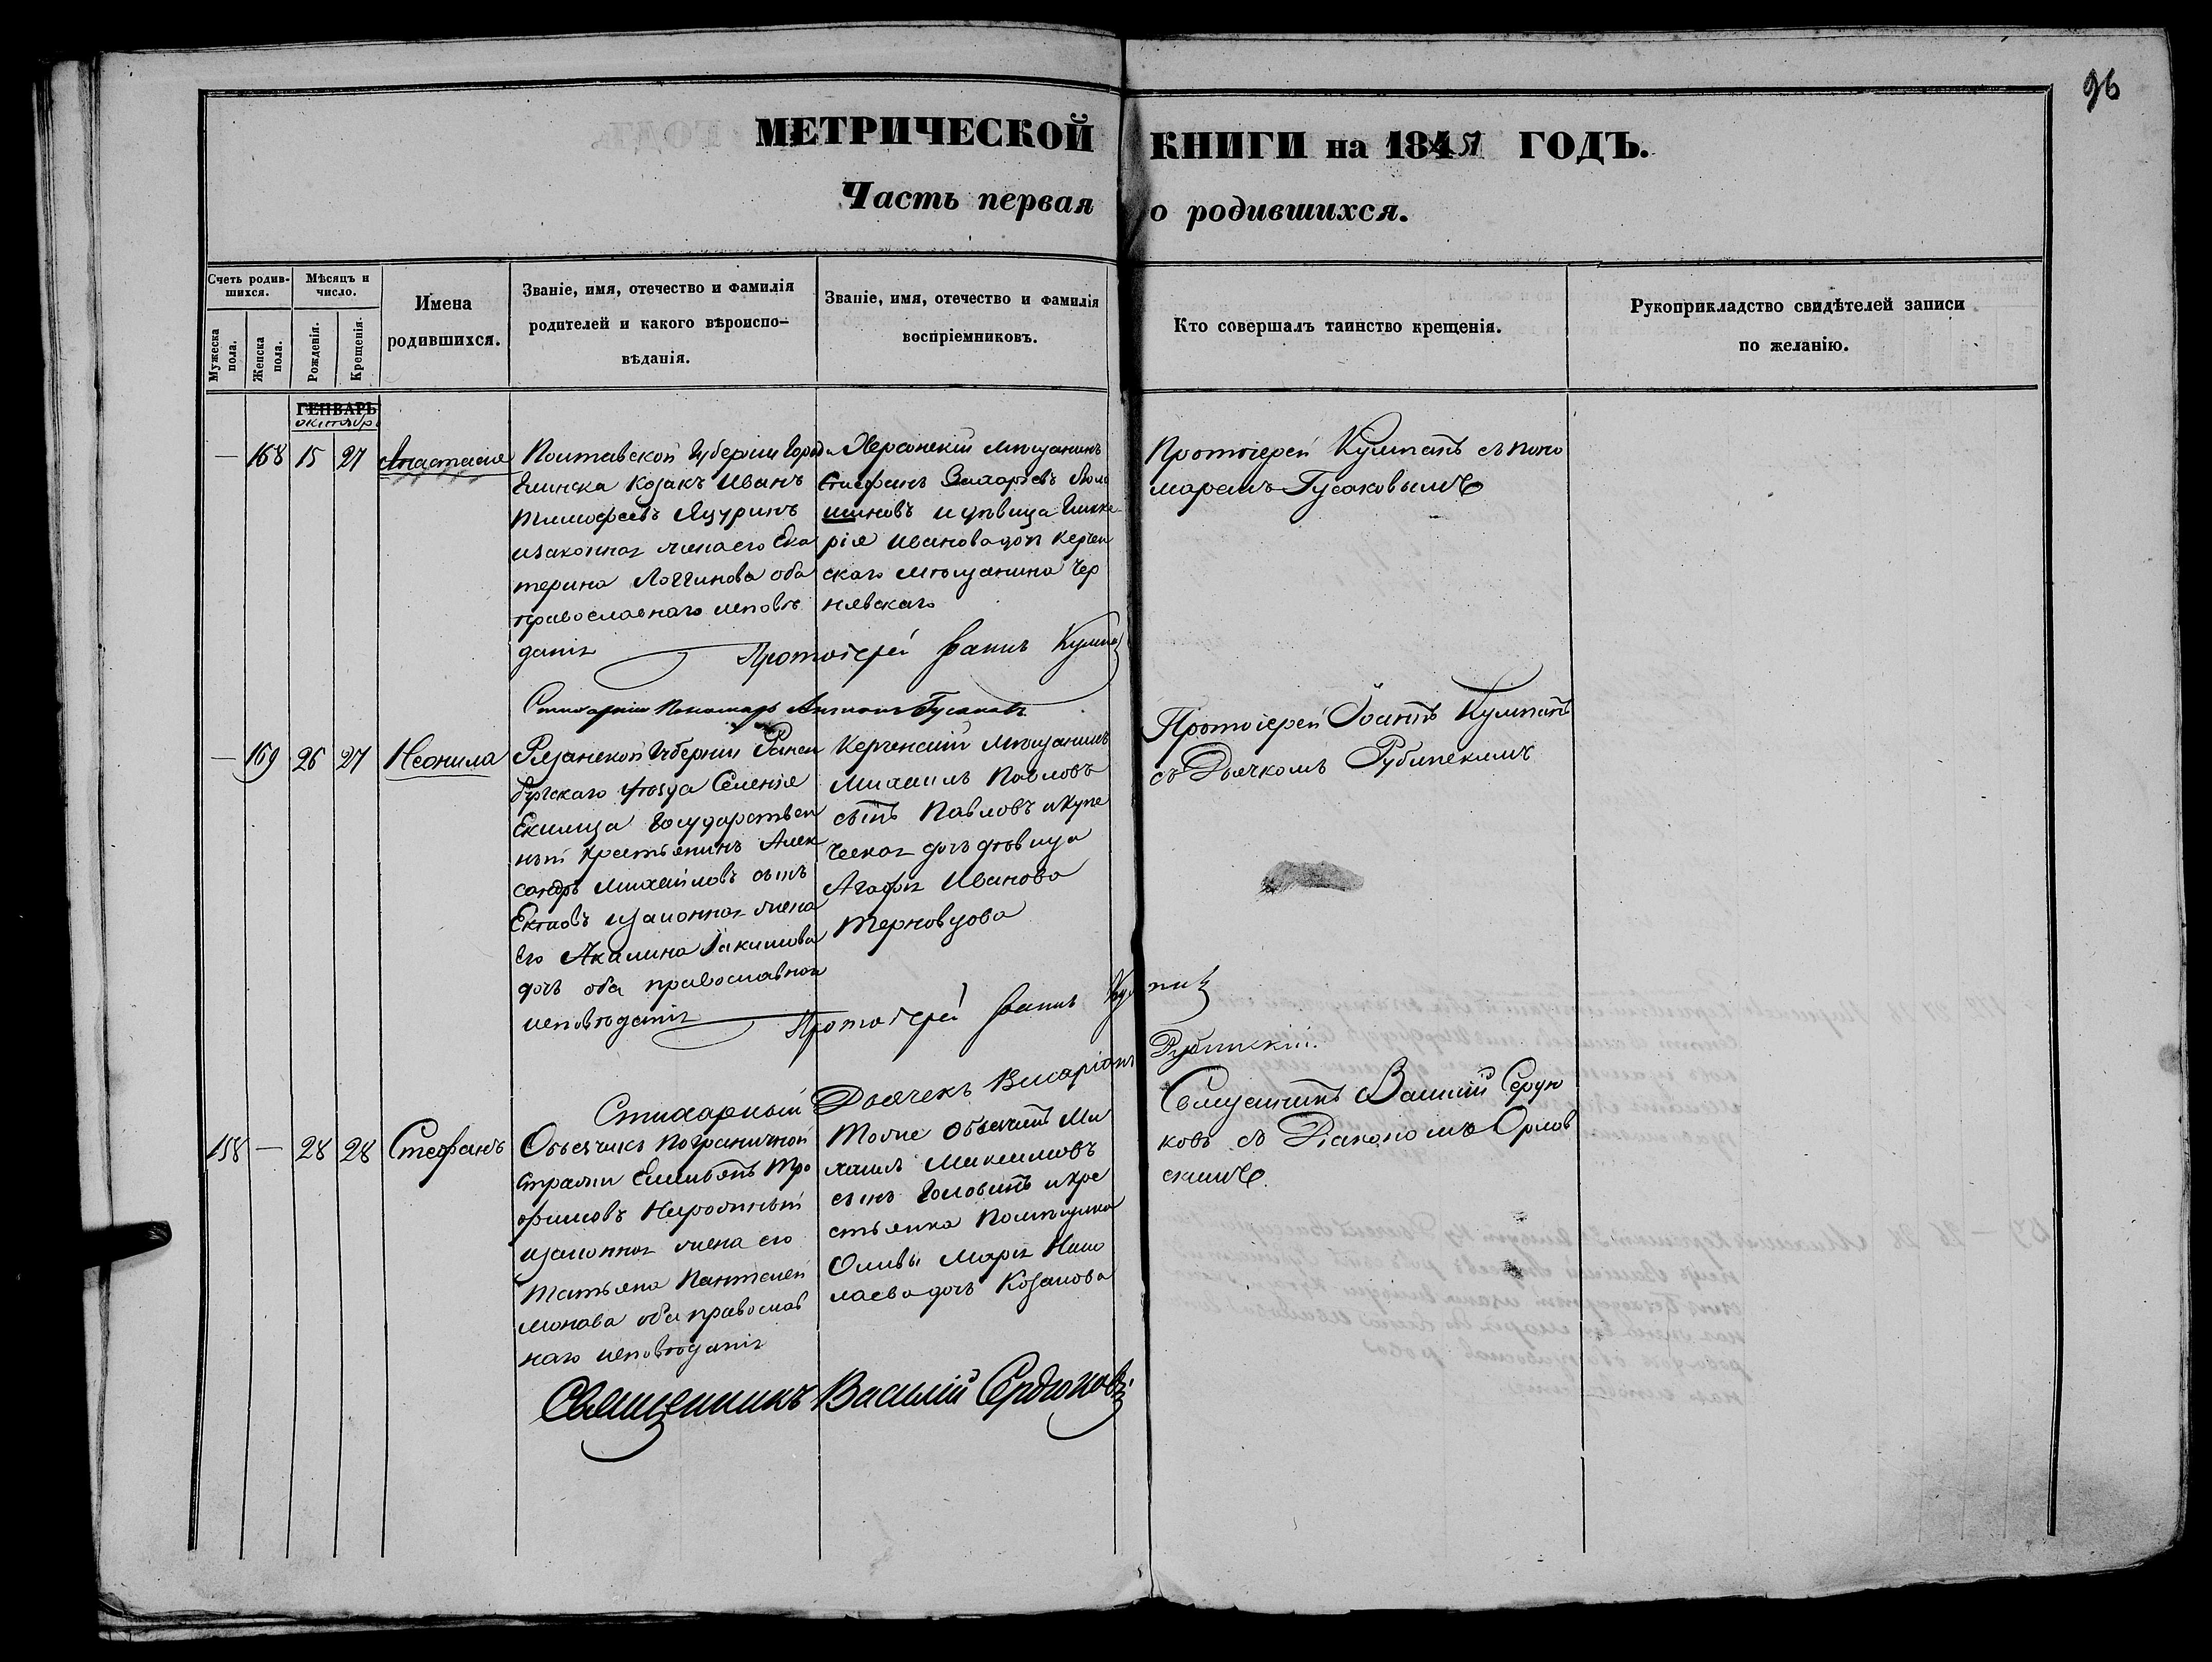 96
МЕТРИЧЕСКОЙ КНИГИ на 1851 ГОДЪ.
Часть первая о родившихся.
Счетъ родив-
шихся.
Мѣсяцъ и
число.
Мужеска
пола.
Женска
пола.
Рожденія.
Крещенія.
Имена
родившихся.
Званіе, имя, отечество и фамилія
родителей и какого вѣроиспо-
вѣданія.
Званіе, имя, отечество и фамилія
воспріемниковъ.
Кто совершалъ таинство крещенія.
Рукоприкладство свидѣтелей записи
по желанію.
ГЕНВАРЬ
октябрь
— 168 15 27 Анастасия
Полтавской Губерніи Горо
Козакъ Иванъ
Тимофеевъ Яцуринъ
изаконная жена его Ека
терина Логгинова оба
православнаго исповѣ
данія
Херсонскій мѣщанинъ
Стефанъ Захаріевъ
шиновъ и дѣвица Глике
рія Иванова доч Керчен
скаго мѣщанина Чер
нявскаго
Протоіерей Кумпанъ съ поно
маремъ Гусаковымъ
Протоіерей Іоаннъ Кумпанъ
Стихарный Пономарь Антонъ Гусаковъ
— 169 26 27 Неонила
Рязанской Губерніи Ранен
бургскаго уѣзда Селенія
Екимца Государствен
ный крестьянинъ Алек
сандръ Михайловъ сынъ
изаконная жена
его Акилина Іакимова
дочь оба православнаго
исповѣданія
Керченскій мѣщанинъ
Михаилъ Павловъ
сынъ Павловъ и купе
ческая дочь дѣвица
Агафія Иванова
Терновцова
Протоіерей Іоаннъ Кумпанъ
съ Дьячкомъ Рубинскимъ
Протоіерей Іоаннъ Кумпанъ
Стихарный Дьячекъ Висаріонъ Рубинскій.
158 — 28 28 Стефанъ
Объезчикъ Пограничной
Стражи Емильянъ Тро
фимовъ
изаконная жена его
Татьяна Пантелей
монова оба православ
наго исповѣданія
Тойже Объезчикъ Ми
хаилъ Максимовъ
сынъ Головинъ и кре
стьянка Помѣщика
Оливы Марія Нико
лаева дочь Козакова
Священникъ Василій Сердю
ковъ съ Діакономъ Орлов
скимъ.
Священникъ Василій Сердюковъ